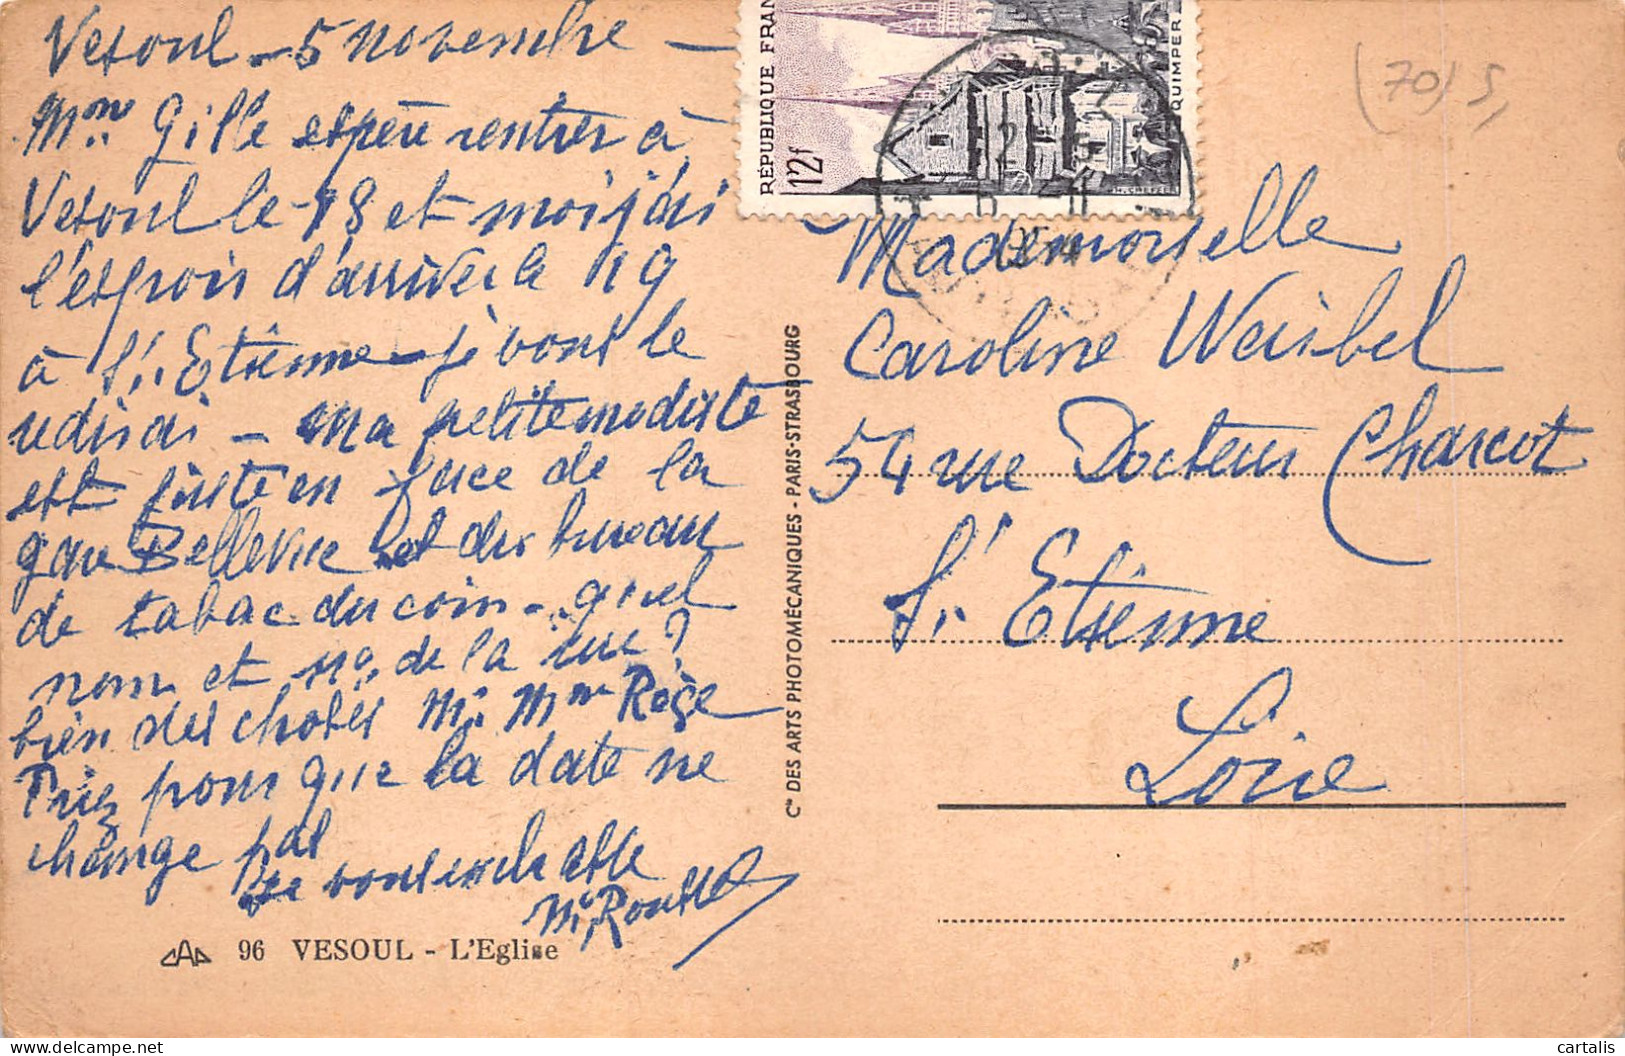 Vesoul - 5 novembre -
Mme Gille espère rentrer à
Vesoul le 18 et moi j'ai
l'espoir d'arriver le 19
à St. Etienne - je vous le
redirai - Ma petite modiste
est juste en face de la
gare Bellevue et du bureau
de tabac du coin - quel
nom et no. de la rue ?
bien des choses Mr. Mme
Priez pour que la date ne
change pas
Je vous embrasse
96 VESOUL - L'Eglise
Cie DES ARTS PHOTOMÉCANIQUES - PARIS-STRASBOURG
RÉPUBLIQUE FRAN
12f
QUIMPER
(70) 5,
Mademoiselle
Caroline Weisbel
54 rue Docteur Charcot
St. Etienne
Loire
cartalis